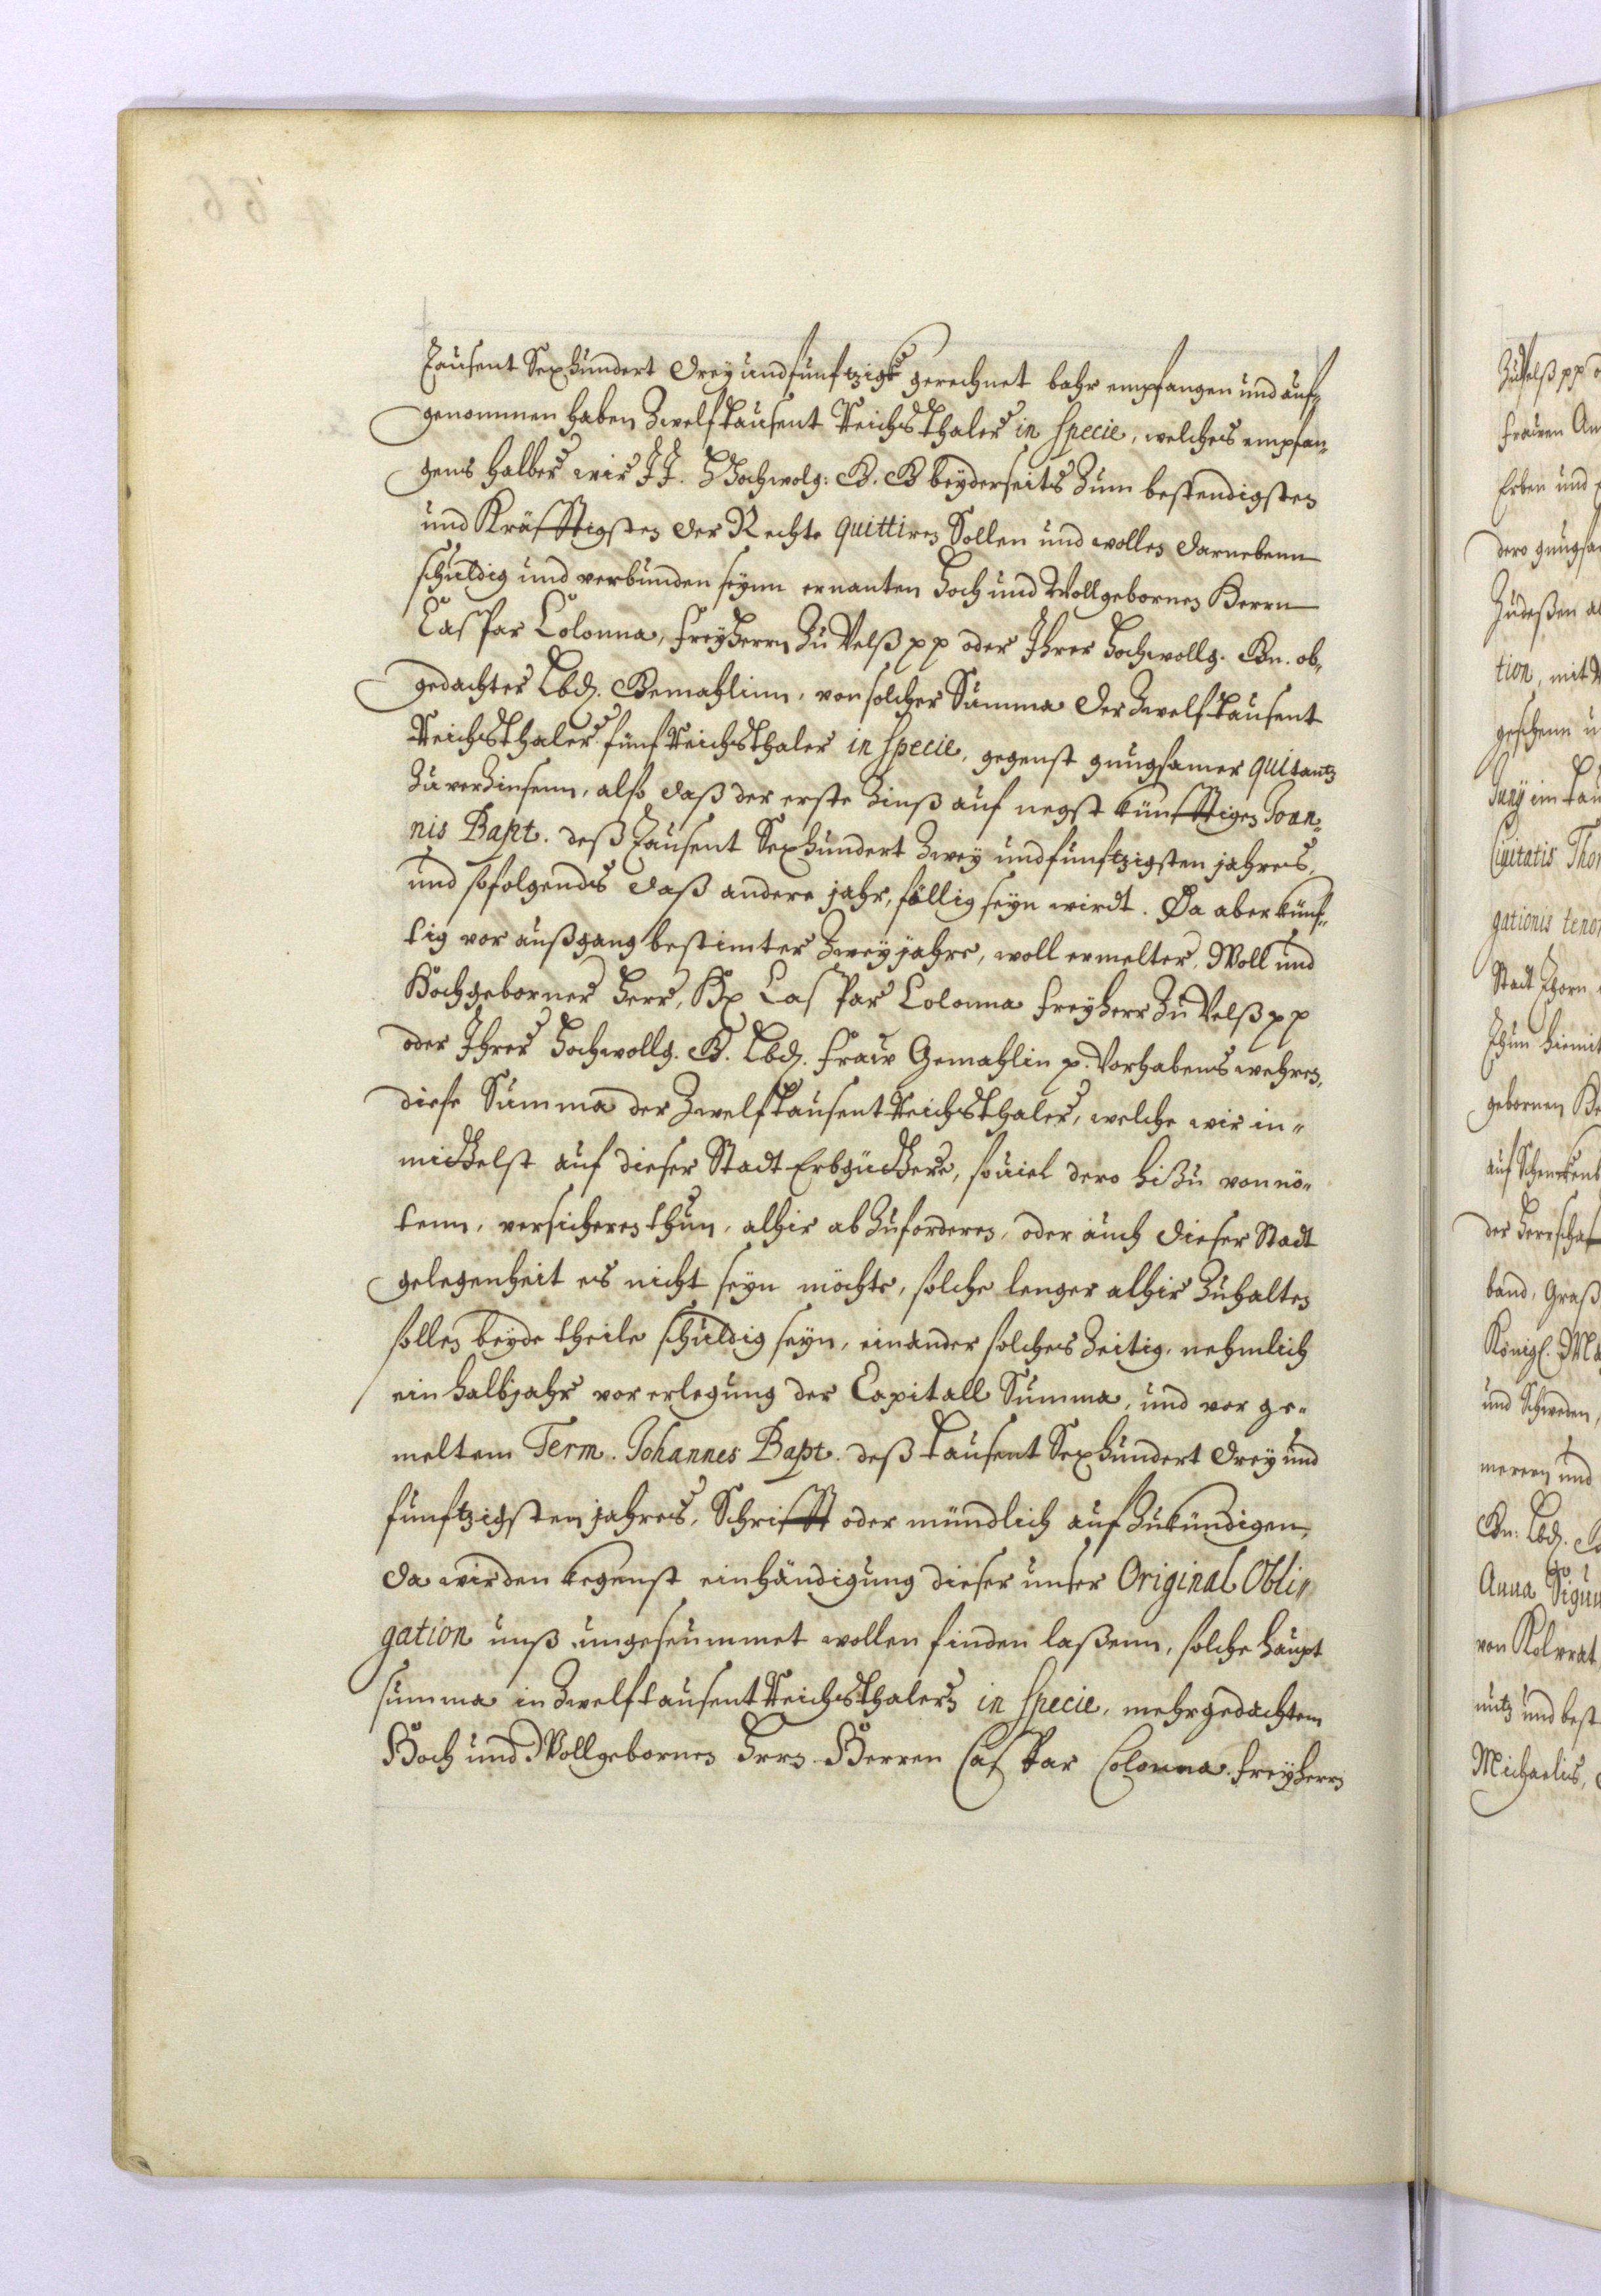 Tausent Sexhundert Drey und funftzigk gerechnet bahr empfangen und auf-
genommen haben Zwelf tausent Reichsthaler in specie, welches empfan-
gens halber wir II. Hochwolg: G. G beyderseits Zum bestendigsten
und Kräfftigsten der Rechte quittiren Sollen und wollen darnebenn
schuldig und verbunden seynn ernanten Hoch und Wollgebornen Herrn
Caspar Colonna, freyherrn Zu Velß pp oder Ihrer Hochwollg. Gn. ob-
gedachter Lbd. Gemahlinn, von solcher Summa der Zwelf tausent
Reichsthaler fünf Reichsthaler in specie, gegenst gnugsamer quitantz
Zu verZinsenn, also daß der erste Zinß auf negst künfftigen Joan-
nis Bapt. deß Tausent Sexhundert Zwey und funftzigsten jahres,
und sofolgends daß andere jahr, fällig seyn wirdt. Da aber künf-
tig vor außgang bestimter Zwey jahre, woll ermelter, Woll und
Hochgeborner Herr, Hr Caspar Colonna freyherr Zu Velß pp
oder Ihrer Hochwollg. G. Lbd. fraw Gemahlin p. Vorhabens wehren,
diese Summa der Zwelf tausent Reichsthaler, welche wir in-
mittelst auf dieser Stadt Erbgüttere, souiel dero hiZu von nö-
tenn, versicheren thun, alhir abZuforderen, oder auch dieser Stadt
gelegenheit es nicht seyn möchte, solche lenger alhir Zuhalten
sollen beyde theile schuldig seyn, einander solches Zeitig, nehmlich
ein halbjahr vor erlegung der Capitall Summa, und vor ge-
meltem Term. Johannes Bapt. deß tausent Sexhundert Drey und
funftzigsten jahres, Schrifft oder mündlich auf Zukündigen,
da wir den kegenst einhändigung dieser unser Original Obli-
gation unß ungeseummet wollen finden laßenn, solche haupt
summa in Zwelf tausent Reichsthalern in specie, mehrgedachtem
Hoch und Wollgebornen Hrrn. Herren Caspar Colonna. freyherrn
Zu Velß pp
frauen An
Erben und
dero gnugsa
Zudeßen
tion, mit
geschenn
Juny im tau
Ciuitatis Thor
gationis tenor
Stadt Thorn
Thun hiemit
gebornen
auf Schencken
der herrscha
band, Graß
Königl. Ma
und Schweden,
merern und
Gn: Lbd.
Anna Sigun
von Kolwrat
nutz und best
Michaelis,